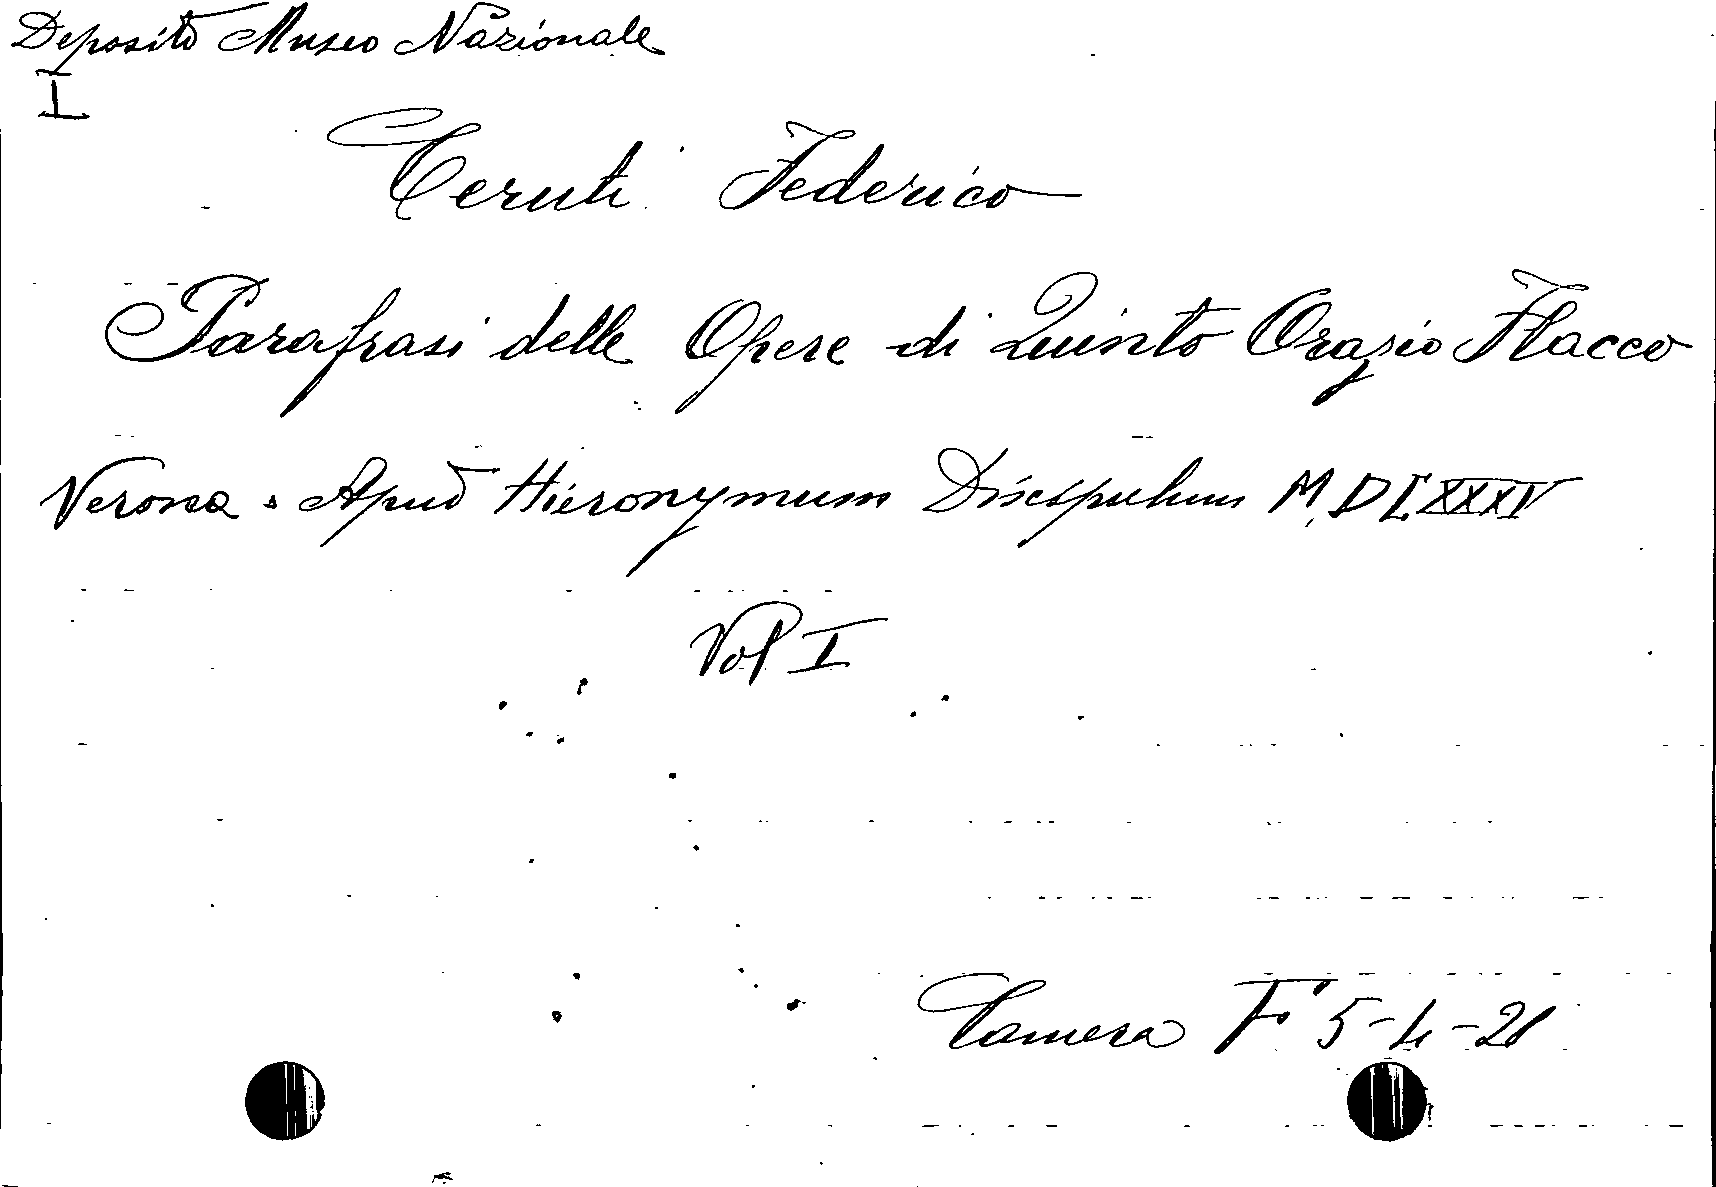 Deposito Museo Nazionale
I
Ceruti Federico
Parafrasi delle Opere di Quinto Orazio Flacco
Verona. Apud Hieronymum Discepulum M.DLXXXV
Vol I
Camera F' 5-4-21